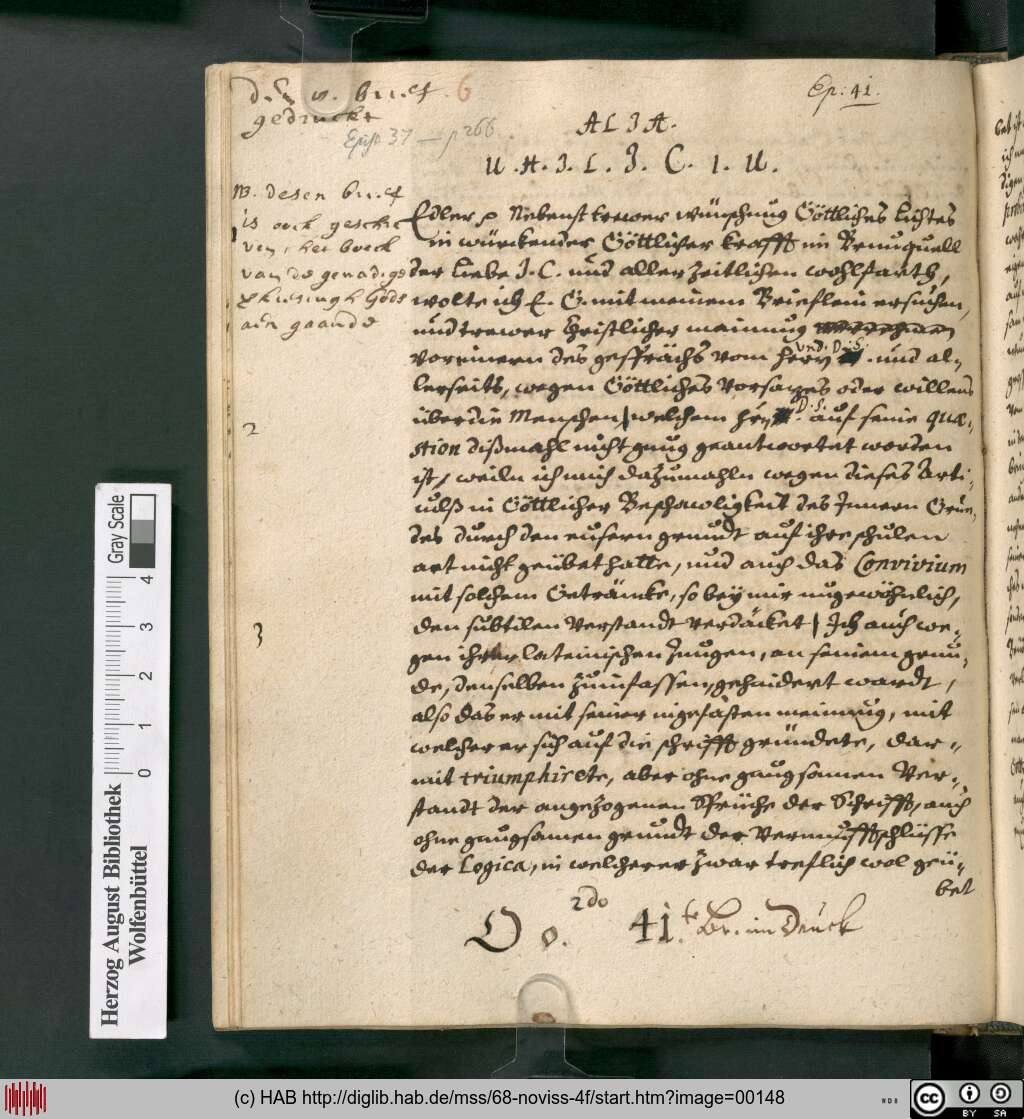 gedruckt
6
Ep: 41.
Epist 37 — p 266
ALIA.
U. H. I. L. J. C. I. U.
NB. desen brieff
is ock geschre
ven, het boeck
van de genadige
Gods
aen gaande
Edler p Nebenst trewer wünschung Göttliches Lichtes
in würckender Göttlicher krafft im Brunquell
der Liebe J. C. und aller zeitlichen wohlfarth,
wolte ich E. G. mit meinem Brieflein ersuchen,
und trewer Christlicher meinung
vorinnern des gesprächs vom Herrn und D: S: und al-
lerseits, wegen Göttliches Vorsatzes oder willens
über die Menschen / welchem hrn D. S. auf seine quæ-
stion dißmahl nicht gnug geantwortet worden
ist, weiln ich mich dazumahln wegen dieses Arti-
culß in Göttlicher Beschawligkeit des Innern Grun-
des durch den eusern grundt auf ihre schulen
art nicht geübet hatte, und auch das Convivium
mit solchem Geträncke, so bey mir ungewöhnlich,
den subtilen Verstandt verdäcket / Ich auch we-
gen ihrer lateinischen Zungen, an seinem grun-
de, denselben zuinfassen, gehindert wardt,
also das er mit seiner ingefasten meinung, mit
welcher er sich auf die schrifft gründete, dar-
mit triumphirete, aber ohne gnugsamen Ver-
standt der angezogenen Sprüche der Schrifft, auch
ohne gnugsamen grundt der Vernunfftschlüsse
der Logica, in welcher er zwar treflich wol geü-
bet
2
3
2do
O o. 41.te Br. im Druck
Gray Scale
0 1 2 3 4
Herzog August Bibliothek
Wolfenbüttel
(c) HAB http://diglib.hab.de/mss/68-noviss-4f/start.htm?image=00148
cc BY SA